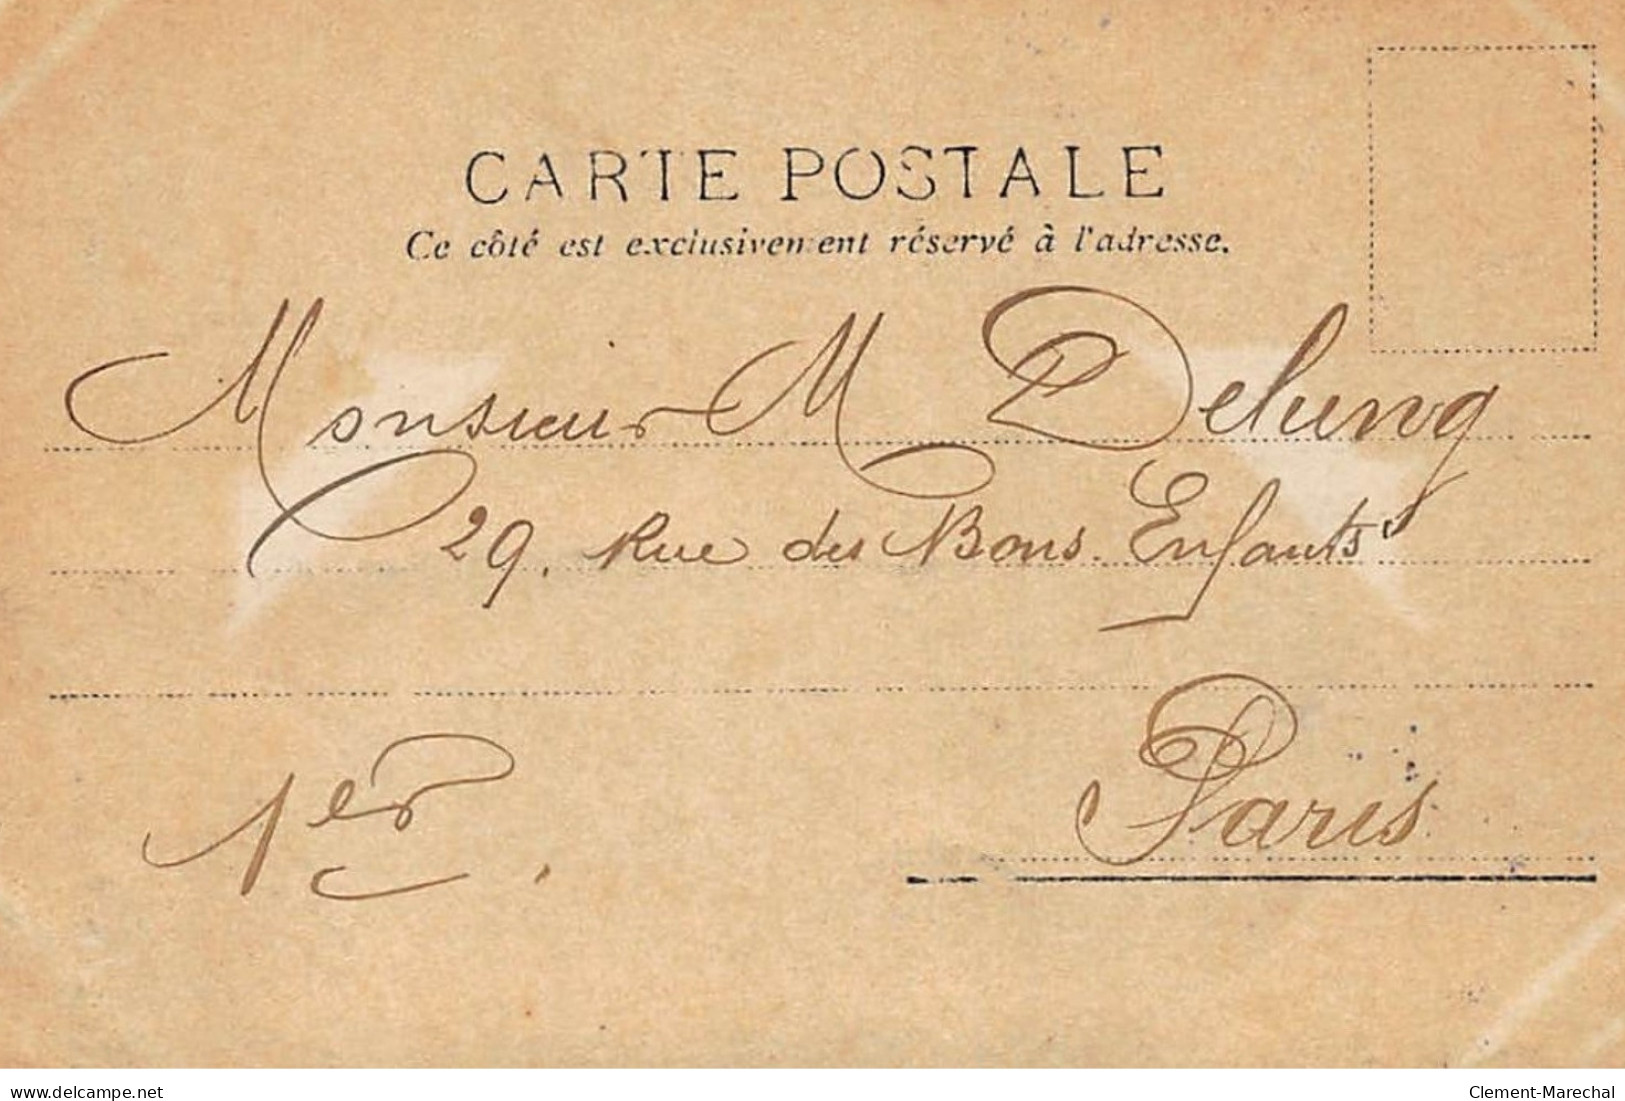 CARTE POSTALE
Ce côté est exclusivement réservé à l'adresse.
Monsieur M Delung
29, Rue des Bons-Enfants
Paris
1er.
www.delcampe.net
Clement-Marechal